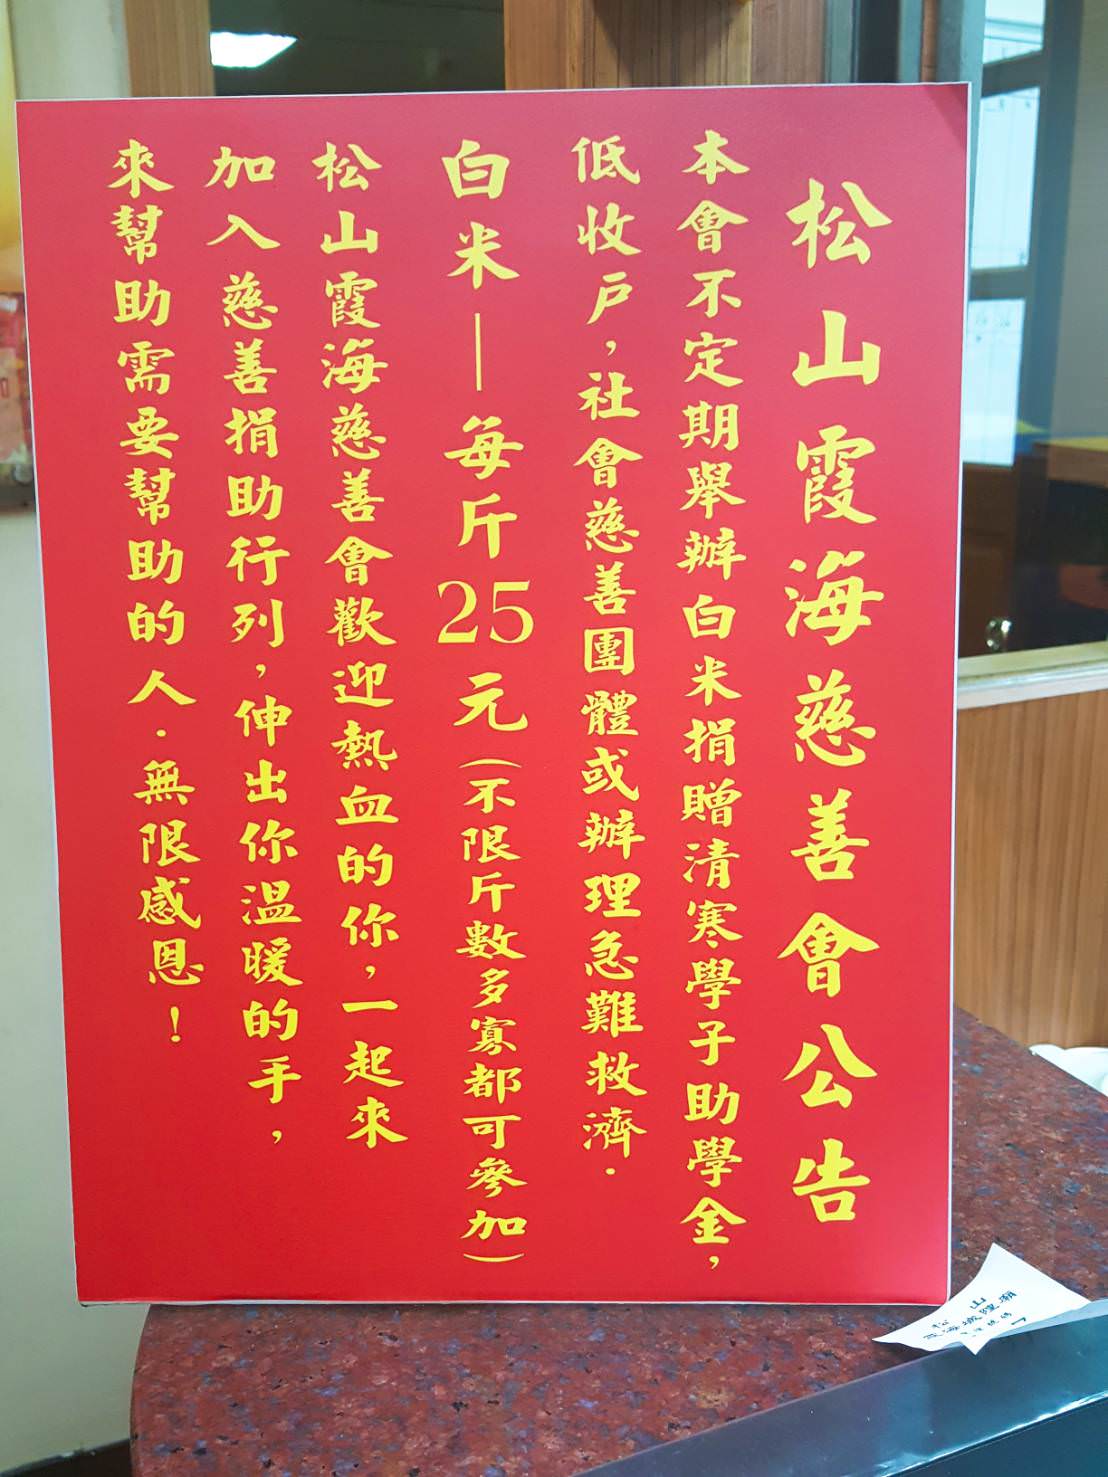 松山霞海慈善會公告
本會不定期舉辦白米捐贈清寒學子助學金，
低收戶，社會慈善團體或辦理急難救濟．
白米—每斤25元(不限斤數多寡都可參加)
松山霞海慈善會歡迎熱血的你，一起來
加入慈善捐助行列，伸出你溫暖的手，
來幫助需要幫助的人．無限感恩！
松山
霞海城隍廟